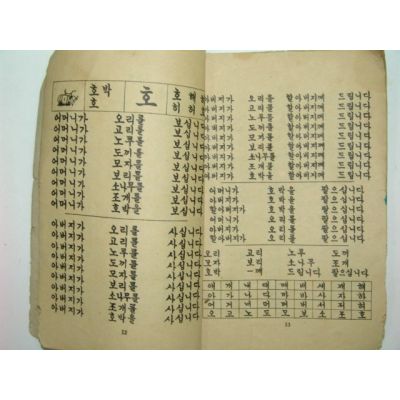 호박 호 해
호 호 히 허
어머니가 오리를 보십니다
어머니가 고리를 보십니다
어머니가 노루를 보십니다
어머니가 도끼를 보십니다
어머니가 모자를 보십니다
어머니가 보리를 보십니다
어머니가 소나무를 보십니다
어머니가 조개를 보십니다
어머니가 호박을 보십니다
아버지가 오리를 사십니다
아버지가 고리를 사십니다
아버지가 노루를 사십니다
아버지가 도끼를 사십니다
아버지가 모자를 사십니다
아버지가 보리를 사십니다
아버지가 소나무를 사십니다
아버지가 조개를 사십니다
아버지가 호박을 사십니다
아버지가 오리를 할아버지께 드립니다
아버지가 고리를 할아버지께 드립니다
아버지가 노루를 할아버지께 드립니다
아버지가 도끼를 할아버지께 드립니다
아버지가 모자를 할아버지께 드립니다
아버지가 보리를 할아버지께 드립니다
아버지가 소나무를 할아버지께 드립니다
아버지가 조개를 할아버지께 드립니다
어머니가 호박을 팔으십니다
오리 고리 노루 도끼
모자 보리 소나무 조개
호박 —께 드립니다 팔으십니다
애 개 내 대 매 배 새 재 해
아 가 나 다 마 바 사 자 하
어 거 너 더 머 버 서 저 허
오 고 노 도 모 보 소 조 호
33